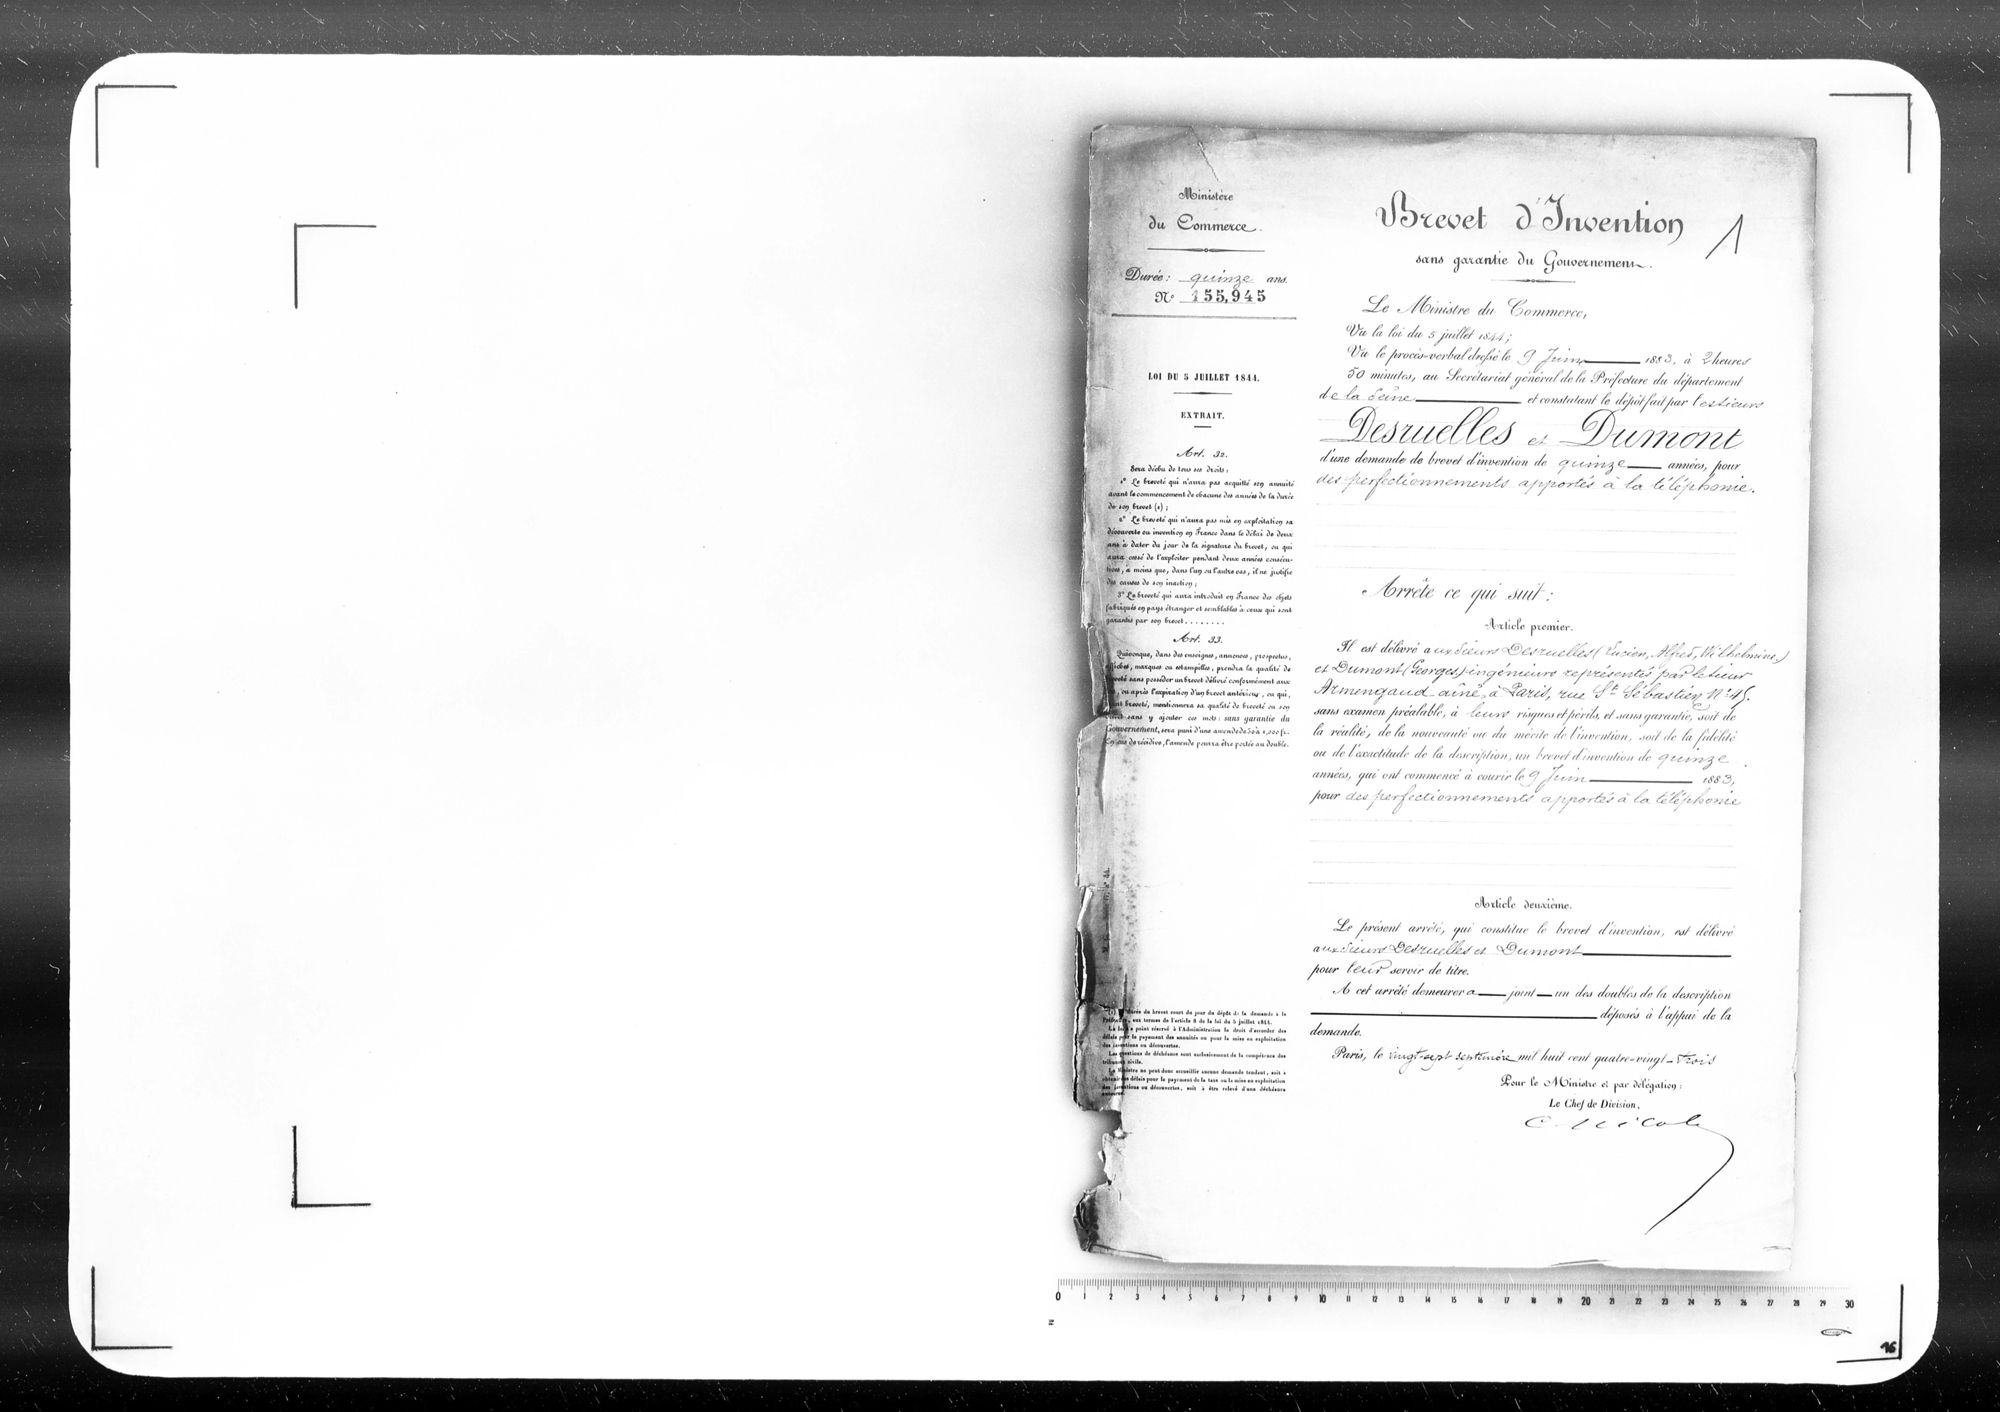 Ministère
du Commerce.
Durée : quinze ans.
N° 155,945
LOI DU 5 JUILLET 1844.
EXTRAIT.
Art. 32.
Sera déchu de tous ses droits :
1° Le breveté qui n'aura pas acquitté son annuité
avant le commencement de chacune des années de la durée
de son brevet (1) ;
2° Le breveté qui n'aura pas mis en exploitation sa
découverte ou invention en France dans le délai de deux
ans à dater du jour de la signature du brevet, ou qui
aura cessé de l'exploiter pendant deux années consécu-
tives, à moins que, dans l'un ou l'autre cas, il ne justifie
des causes de son inaction ;
3° Le breveté qui aura introduit en France des objets
fabriqués en pays étranger et semblables à ceux qui sont
garantis par son brevet . . . . . . . .
Art. 33.
Quiconque, dans des enseignes, annonces, prospectus,
affiches, marques ou estampilles, prendra la qualité de
breveté sans posséder un brevet délivré conformément aux
, ou après l'expiration d'un brevet antérieur, ou qui,
étant breveté, mentionnera sa qualité de breveté ou son
brevet sans y ajouter ces mots : sans garantie du
Gouvernement, sera puni d'une amende de 50 à 1,000 fr.
En cas de récidive, l'amende pourra être portée au double.
(1) La durée du brevet court du jour du dépôt de la demande à la
Préfecture, aux termes de l'article 8 de la loi du 5 juillet 1844.
La loi n'a point réservé à l'Administration le droit d'accorder des
délais pour le payement des annuités ou pour la mise en exploitation
des inventions ou découvertes.
Les questions de déchéance sont exclusivement de la compétence des
tribunaux civils.
Le Ministre ne peut donc accueillir aucune demande tendant, soit à
obtenir des délais pour le payement de la taxe ou la mise en exploitation
des inventions ou découvertes, soit à être relevé d'une déchéance
encourue.
Brevet d'Invention
1
sans garantie du Gouvernement.
Le Ministre du Commerce,
Vu la loi du 5 juillet 1844 ;
Vu le procès-verbal dressé le 9 Juin 1883, à 2 heures
50 minutes, au Secrétariat général de la Préfecture du département
de la Seine et constatant le dépôt fait par les sieurs
Desruelles et Dumont
d'une demande de brevet d'invention de quinze années, pour
des perfectionnements apportés à la téléphonie.
Arrête ce qui suit :
Article premier.
Il est délivré aux sieurs Desruelles (Lucien, Alfred, Wilhelmine,)
et Dumont (Georges) ingénieurs représentés par le sieur
Armengaud aîné, à Paris, rue St. Sébastien N° 45.
sans examen préalable, à leurs risques et périls, et sans garantie, soit de
la réalité, de la nouveauté ou du mérite de l'invention, soit de la fidélité
ou de l'exactitude de la description, un brevet d'invention de quinze
années, qui ont commencé à courir le 9 Juin 1883,
pour des perfectionnements apportés à la téléphonie
Article deuxième.
Le présent arrêté, qui constitue le brevet d'invention, est délivré
aux sieurs Desruelles et Dumont
pour leur servir de titre.
A cet arrêté demeurera joint un des doubles de la description
déposés à l'appui de la
demande.
Paris, le vingt-sept septembre mil huit cent quatre-vingt-trois
Pour le Ministre et par délégation :
Le Chef de Division,
0 1 2 3 4 5 6 7 8 9 10 11 12 13 14 15 16 17 18 19 20 21 22 23 24 25 26 27 28 29 30
16